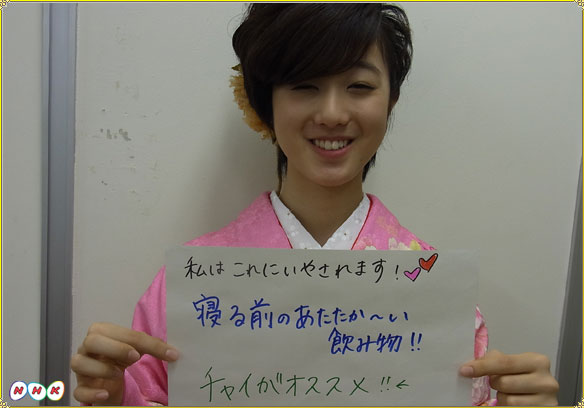 私はこれにいやされます!
寝る前のあたたか〜い
飲み物!!
チャイがオススメ!!←
NHK